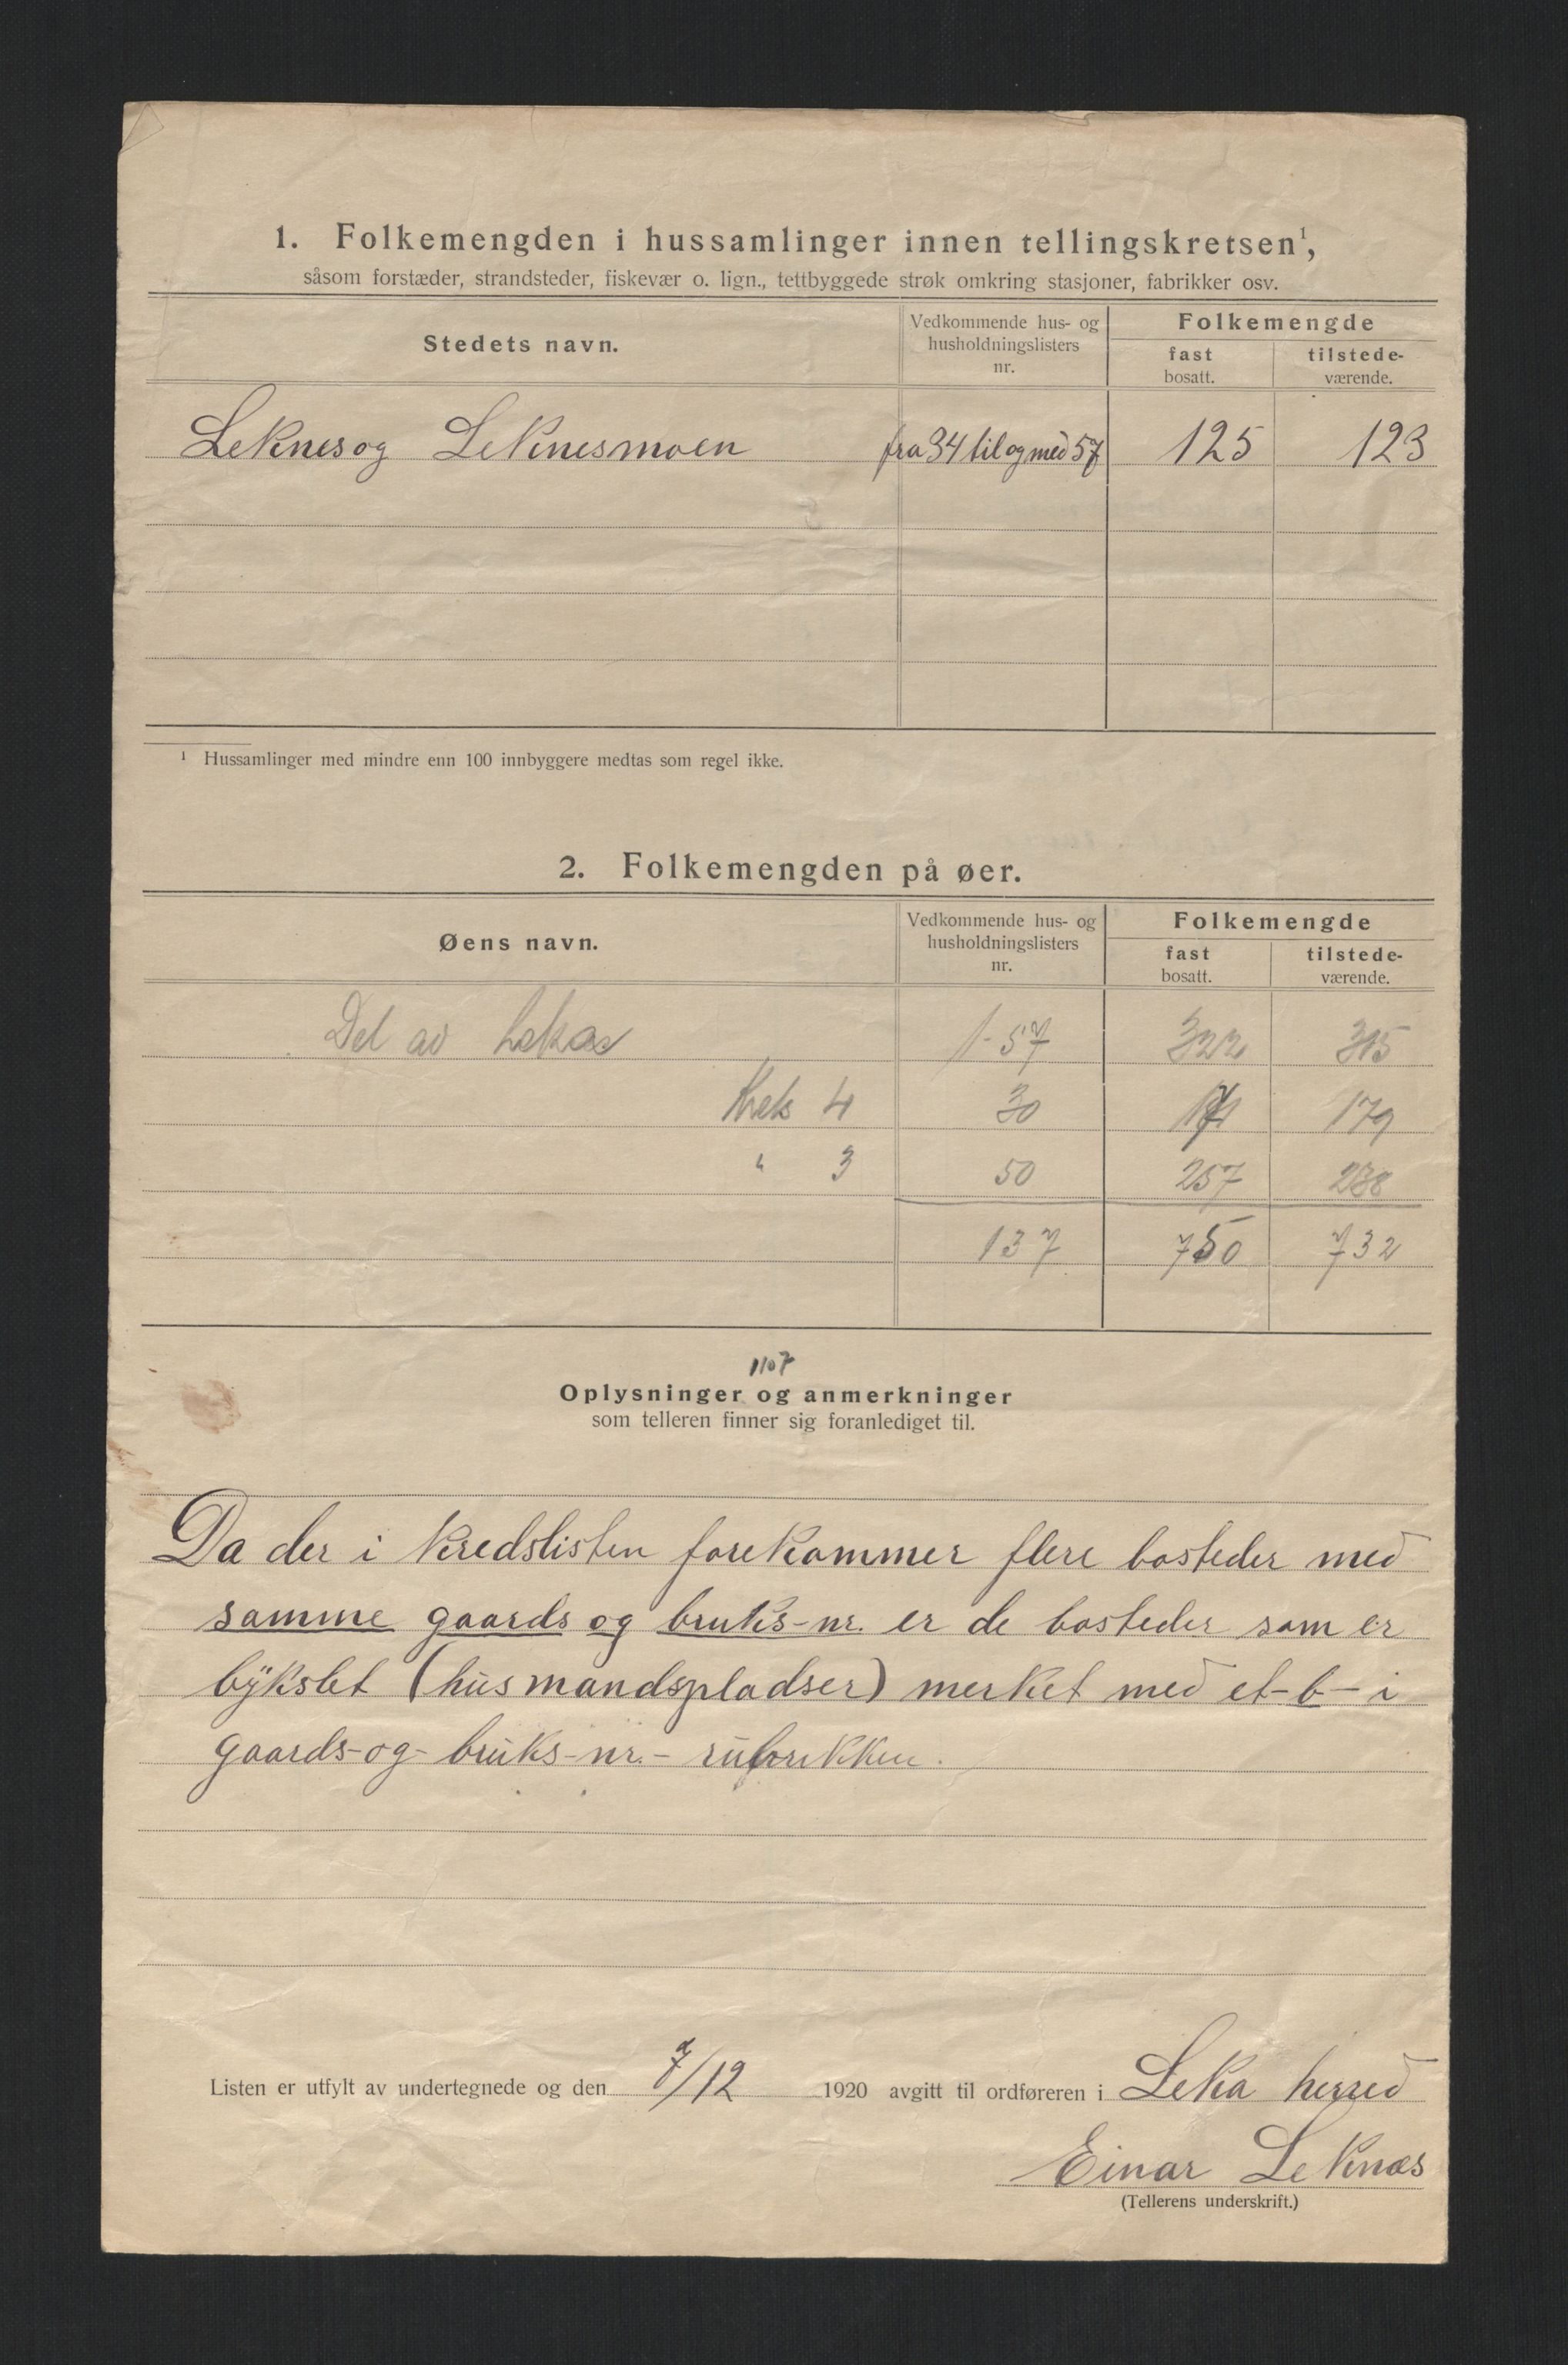 1. Folkemengden i hussamlinger innen tellingskretsen¹,
såsom forstæder, strandsteder, fiskevær o. lign., tettbyggede strøk omkring stasjoner, fabrikker osv.
Stedets navn. Vedkommende hus- og husholdningslisters nr. Folkemengde
fast bosatt. tilstede-værende.
Leknes og Leknesmoen fra 34 til og med 57 125 123
¹ Hussamlinger med mindre enn 100 innbyggere medtas som regel ikke.
2. Folkemengden på øer.
Øens navn. Vedkommende hus- og husholdningslisters nr. Folkemengde
fast bosatt. tilstede-værende.
Del av Leka 1-57 322 315
Krets 4 30 179
" 3 50 257 238
137 750 732
1107
Oplysninger og anmerkninger
som telleren finner sig foranlediget til.
Da der i kredslisten forekommer flere bosteder med
samme gaards og bruks-nr. er de bosteder som er
bykslet (husmandspladser) merket med et -b- i
gaards- og bruks-nr.- rubrikken.
Listen er utfylt av undertegnede og den 7/12 1920 avgitt til ordføreren i Leka herred
Einar Leknæs
(Tellerens underskrift.)